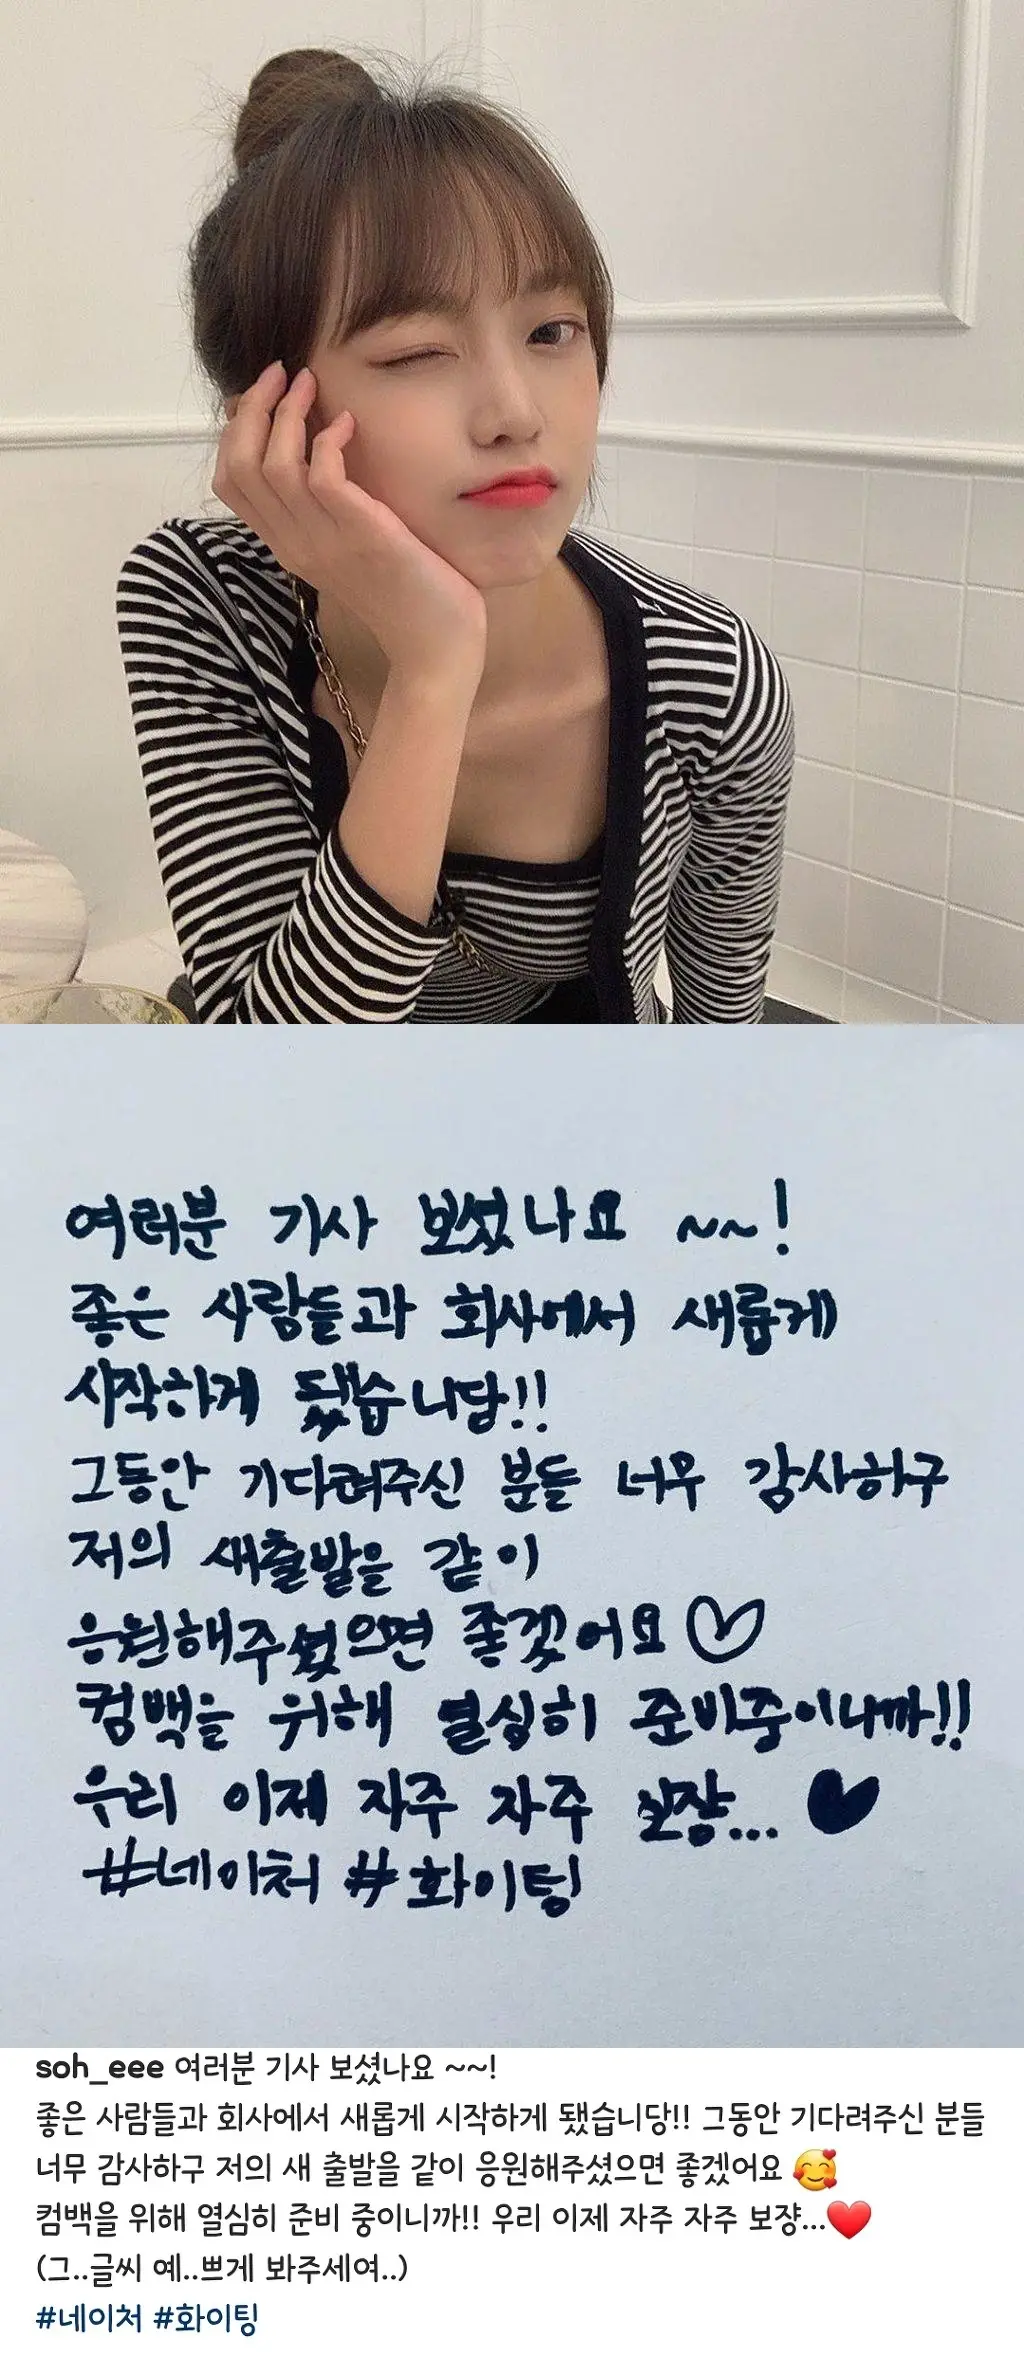 여러분 기사 보셨나요 ~~!
좋은 사람들과 회사에서 새롭게
시작하게 됐습니당!!
그동안 기다려주신 분들 너무 감사하구
저의 새출발을 같이
응원해주셨으면 좋겠어요♡
컴백을 위해 열심히 준비중이니까!!
우리 이제 자주 자주 보쟝...♥
#네이처 #화이팅
soh_eee 여러분 기사 보셨나요 ~~!
좋은 사람들과 회사에서 새롭게 시작하게 됐습니당!! 그동안 기다려주신 분들
너무 감사하구 저의 새 출발을 같이 응원해주셨으면 좋겠어요 🥰
컴백을 위해 열심히 준비 중이니까!! 우리 이제 자주 자주 보쟝...❤️
(그..글씨 예..쁘게 봐주세여..)
#네이처 #화이팅